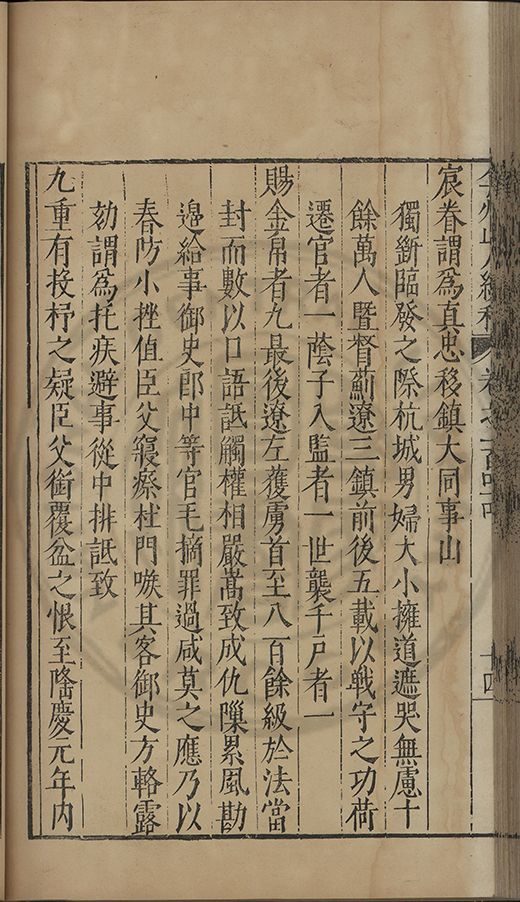 弇州山人續稿 卷之一百四十 十四
宸眷謂為真忠移鎮大同事山
獨斷臨發之際杭城男婦大小擁道遮哭無慮十
餘萬人暨督薊遼三鎮前後五載以戰守之功荷
遷官者一蔭子入監者一世襲千戶者一
賜金帛者九最後遼左獲虜首至八百餘級於法當
封而數以口語詆觸權相嚴嵩致成仇隟累風勘
邉給事御史郎中等官毛摘罪過咸莫之應乃以
春防小挫值臣父寢瘵杜門嗾其客御史方輅露
劾謂為托疾避事從中排詆致
九重有投杼之疑臣父銜覆盆之恨至隆慶元年內